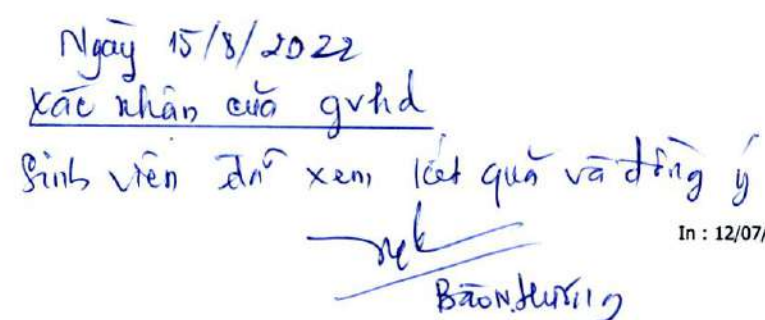 Ngày 15/8/2022
Xác nhận của gvhd
Sinh viên đã xem kết quả và đồng ý
In : 12/07/
Bảo N. Hương